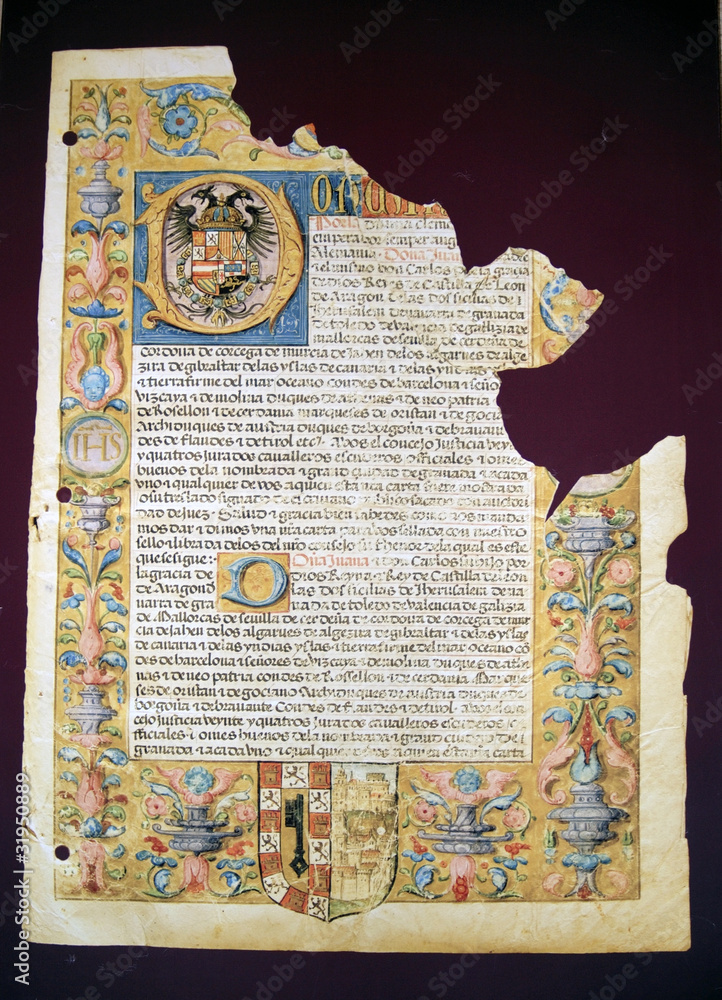 DON
Por la clemen
emperador semper aug
Alemania Doña Juana
el mismo don Carlos por la gracia
de dios Reyes de Castilla de Leon
de Aragon de las dos sicilias de
Iherusalem de navarra de granada
de toledo de valencia de gallizia de
mallorcas de sevilla de cerdeña de
cordova de corcega de murcia de Jahen de los algarves de alge
zira de gibraltar de las yslas de canaria & de las yndias
& tierra firme del mar oceano condes de barcelona & seño
vizcaya & de molina duques de athenas & de neo patria
de Rosellon & de cerdania marqueses de oristan & de gocia
Archiduques de austria duques de borgoña & de bravan
des de flandes & de tirol etc. A vos el concejo Justicia vey
y quatros jurados cavalleros escuderos officiales & ome
buenos de la nombrada & grand ciudad de granada & a cada
uno & qualquier de vos a quien esta nra carta fuere mostrada
o su treslado signado de escrivano
dad de juez Salud & gracia bien sabedes como nos mandi
mos dar & dimos una nra carta sellada con nuestro
sello & librada de los del nro consejo su thenor de la qual es este
que se sigue:
Doña Juana & don Carlos su hijo por
la gracia de dios Reyna & Rey de Castilla de Leon
de Aragon de las dos sicilias de Iherusalem de na
varra de granada de toledo de valencia de galizia
de Mallorcas de sevilla de cerdeña de cordova de corcega de mur
cia de Jahen de los algarves de algezira de gibraltar & de las yslas
de canaria & de las yndias yslas & tierra firme del mar oceano cõ
des de barcelona & señores de vizcaya & de molina duques de athe
nas & de neo patria condes de Rosellon & de cerdania Marque
ses de oristan & de gociano Archiduques de austria duques de
borgoña & de bravante Condes de flandes & de tirol a vos el con
cejo justicia veynte y quatros Jurados cavalleros escuderos
officiales & omes buenos de la nombrada & grand ciudad de
granada & a cada uno & qualquier de vos a quien esta nra carta
IHS
Adobe Stock | #31950889